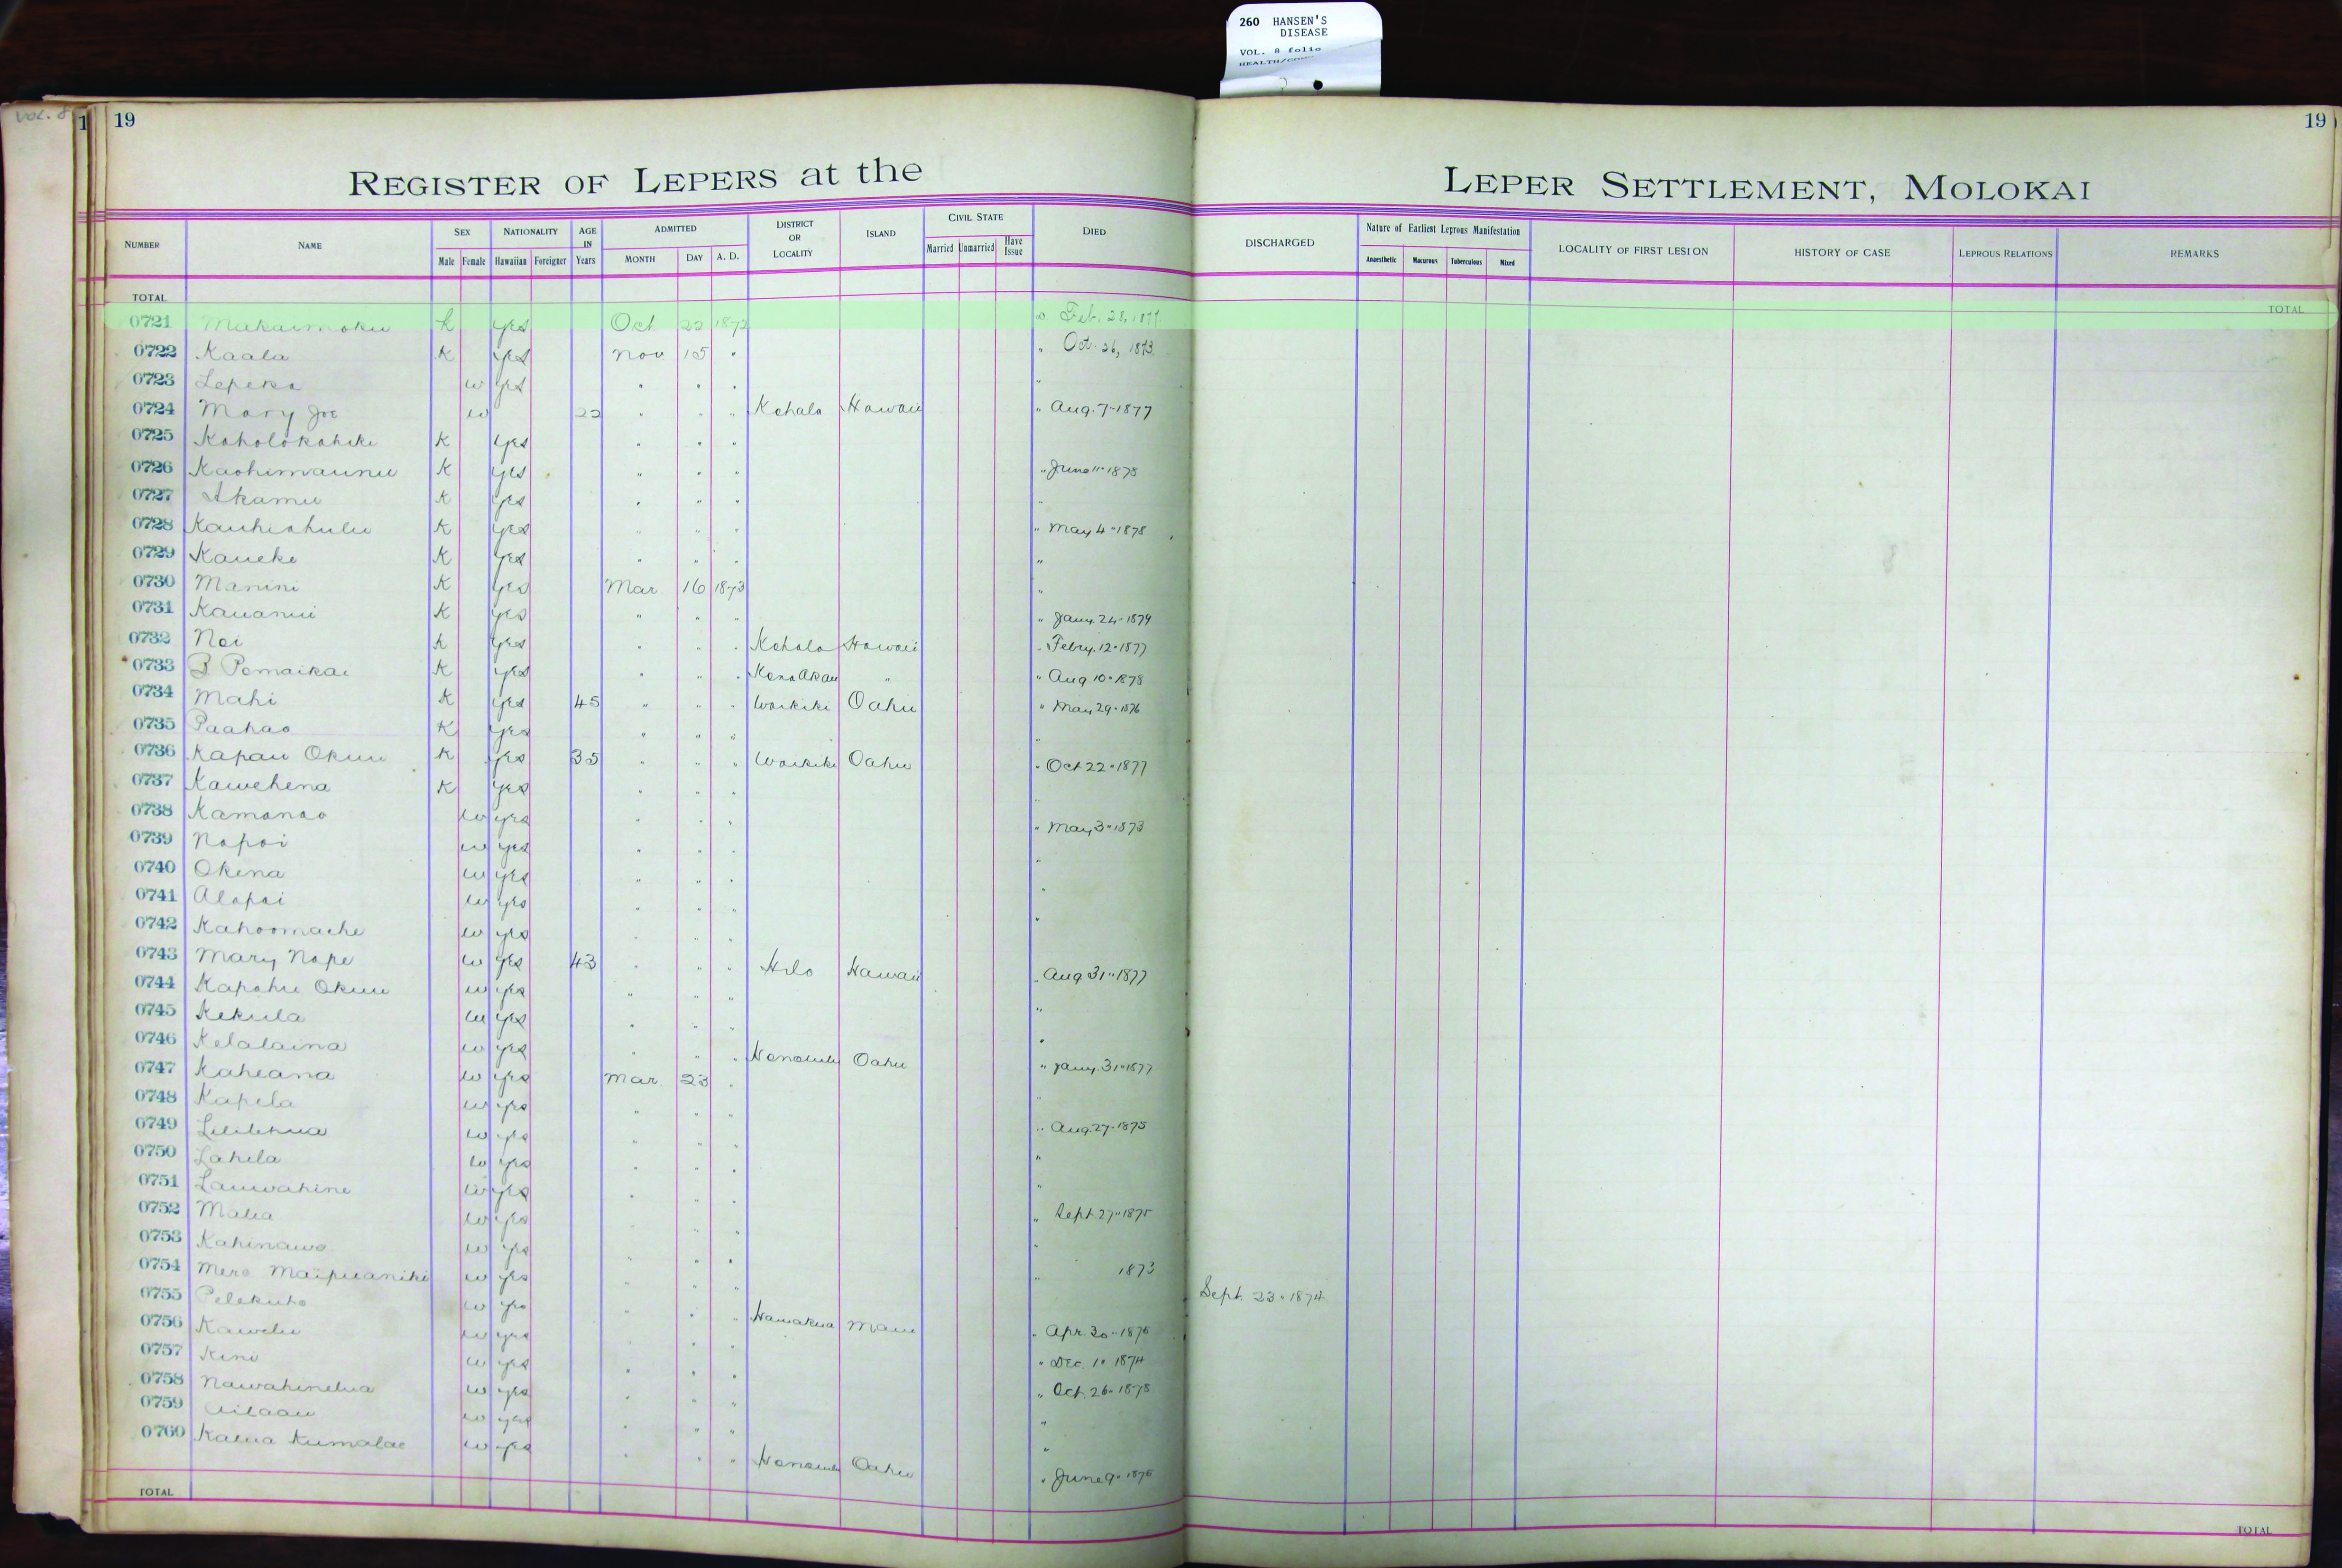 260 HANSEN'S
DISEASE
VOL. 8 folio
VOL. 8
1 19 19
REGISTER OF LEPERS at the LEPER SETTLEMENT, MOLOKAI
NUMBER NAME SEX Male Female NATIONALITY Hawaiian Foreigner AGE IN Years ADMITTED MONTH DAY A. D. DISTRICT OR LOCALITY ISLAND CIVIL STATE Married Unmarried Have Issue DIED DISCHARGED Nature of Earliest Leprous Manifestation Anaesthetic Macurous Tuberculous Mixed LOCALITY OF FIRST LESION HISTORY OF CASE LEPROUS RELATIONS REMARKS
TOTAL TOTAL
0721 Makaimoku K yes Oct. 22 1872 Feb. 28, 1879
0722 Kaala K yes Nov 15 " " Oct. 26, 1873
0723 Lepeka w yes " " " "
0724 Mary Joe w 22 " " " Kohala Hawaii " Aug. 7-1877
0725 Koholokahiki K yes " " "
0726 Kaohimaunu K yes " " " " June 11-1878
0727 Akamu K yes " " " "
0728 Kauhiahulu K yes " " " " May 4-1878
0729 Kaueke K yes " " " "
0730 Manini K yes Mar 16 1873 "
0731 Kauanui K yes " " " " Jany. 24-1879
0732 Noi K yes " " " Kohala Hawaii " Febry. 12-1877
0733 B Pomaikai K yes " " " Kona Akau " " Aug 10-1878
0734 Mahi K yes 45 " " " Waikiki Oahu " May 29-1876
0735 Paahao K yes " " " "
0736 Kapau Okuu K yes 35 " " " Waikiki Oahu " Oct 22-1877
0737 Kawehena K yes " " " "
0738 Kamanao w yes " " " " May 3-1873
0739 Napoi w yes " " " "
0740 Okina w yes " " " "
0741 Alapai w yes " " " "
0742 Kahoomaehe w yes " " "
0743 Mary Nape w yes 43 " " " Hilo Hawaii " Aug 31-1877
0744 Kapahu Okuu w yes " " " "
0745 Kekula w yes " " " "
0746 Kelalaina w yes " " " Honolulu Oahu " Jany. 31-1877
0747 Kaheana w yes Mar. 23 " "
0748 Kapela w yes " " " " Aug. 27-1875
0749 Lililehua w yes " " " "
0750 Lahela w yes " " " "
0751 Lauwahine w yes " " " " Sept. 27-1875
0752 Malia w yes " " " "
0753 Kahinawe w yes " " " " 1873
0754 Mere Maipuaniki w yes " " " Sept. 23-1874
0755 Pelekuho w yes " " " Hamakua Maui " Apr. 30-1876
0756 Kawelu w yes " " " " Dec. 10 1874
0757 Kini w yes " " " " Oct. 26-1878
0758 Nawahinelua w yes " " " "
0759 Ailaau w yes " " " "
0760 Kalua Kumalae w yes " " " Honolulu Oahu " June 9-1876
TOTAL TOTAL